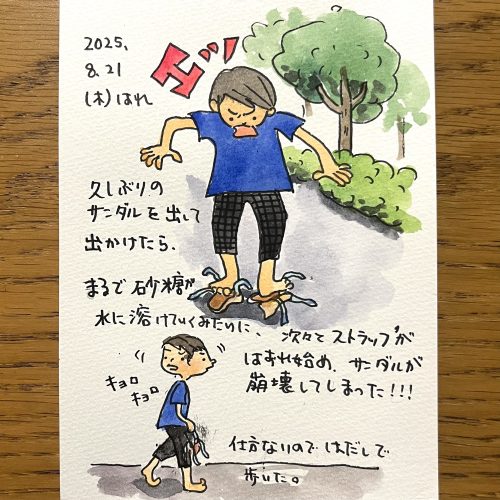 2025.
8.21
(木)はれ
エッ
久しぶりの
サンダルを出して
出かけたら、
まるで砂糖が
水に溶けていくみたいに、次々とストラップが
はずれ始め、サンダルが
崩壊してしまった!!!
キョロ
キョロ
仕方ないので はだしで
歩いた。